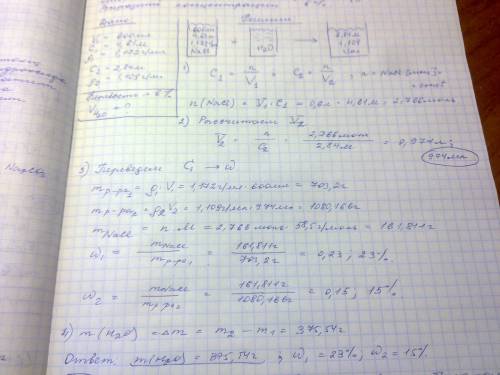 Дано
Решение
V₁ = 600мл
C₁ = 4,61М
ρ₁ = 1,172г/мл
C₂ = 2,84М
ρ₂ = 1,109г/мл
V H₂O = ?
600мл 4,61М 1,172г/мл NaCl + H₂O → 2,84М 1,109 г/мл
1) C₁ = n/V₁ C₂ = n/V₂ ; n = NaCl = const
n(NaCl) = V₁·C₁ = 0,6л · 4,61М = 2,766моль
2) Рассчитаем V₂
V₂ = n/C₂ = 2,766моль/2,84М = 0,974л;
974мл
NaCl
3) Переведем C₁ → ω
m р-ра₁ = ρ₁·V₁ = 1,172г/мл · 600мл = 703,2г
m р-ра₂ = ρ₂V₂ = 1,109г/мл · 974мл = 1080,166г
m NaCl = n·M = 2,766 моль · 58,5г/моль = 161,811г
ω₁ = m NaCl/m р-ра₁ = 161,811г/703,2г = 0,23; 23%
ω₂ = m NaCl/m р-ра₂ = 161,811г/1080,166г = 0,15; 15%
4) m(H₂O) = Δm = m₂ - m₁ = 375,54г
Ответ: m(H₂O) = 375,54г ; ω₁ = 23% ; ω₂ = 15%